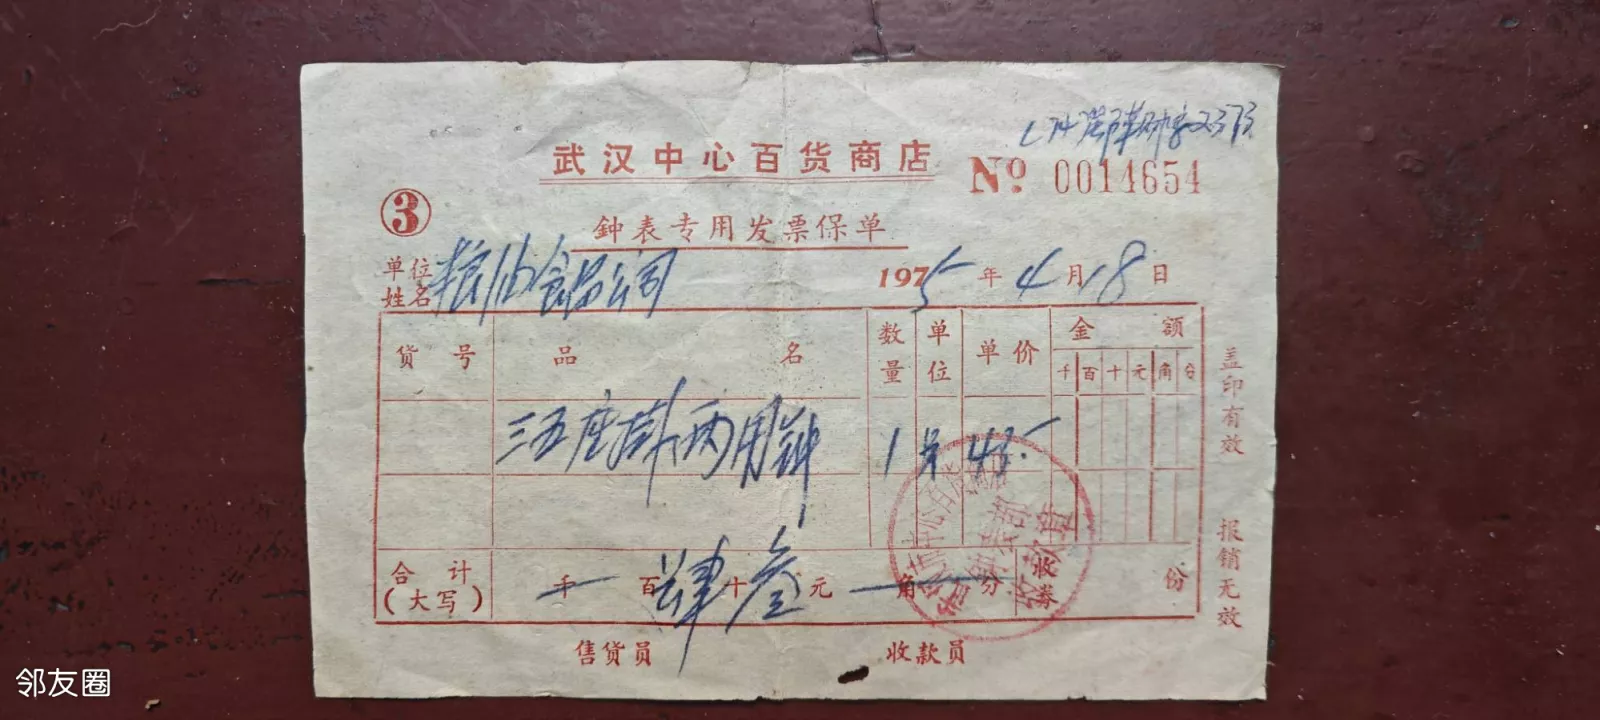 武汉中心百货商店
No 0014654
③
鈡表专用发票保单
单位
姓名 粮油食品公司
1975年4月18日
货号 品名 数量 单位 单价 金额
千 百 十 元 角 分
三五座掛两用钟 1
合计
(大写)
千 百 肆 十 叁 元 角 分
收券 份
售货员 收款员
盖印有效
报销无效
邻友圈